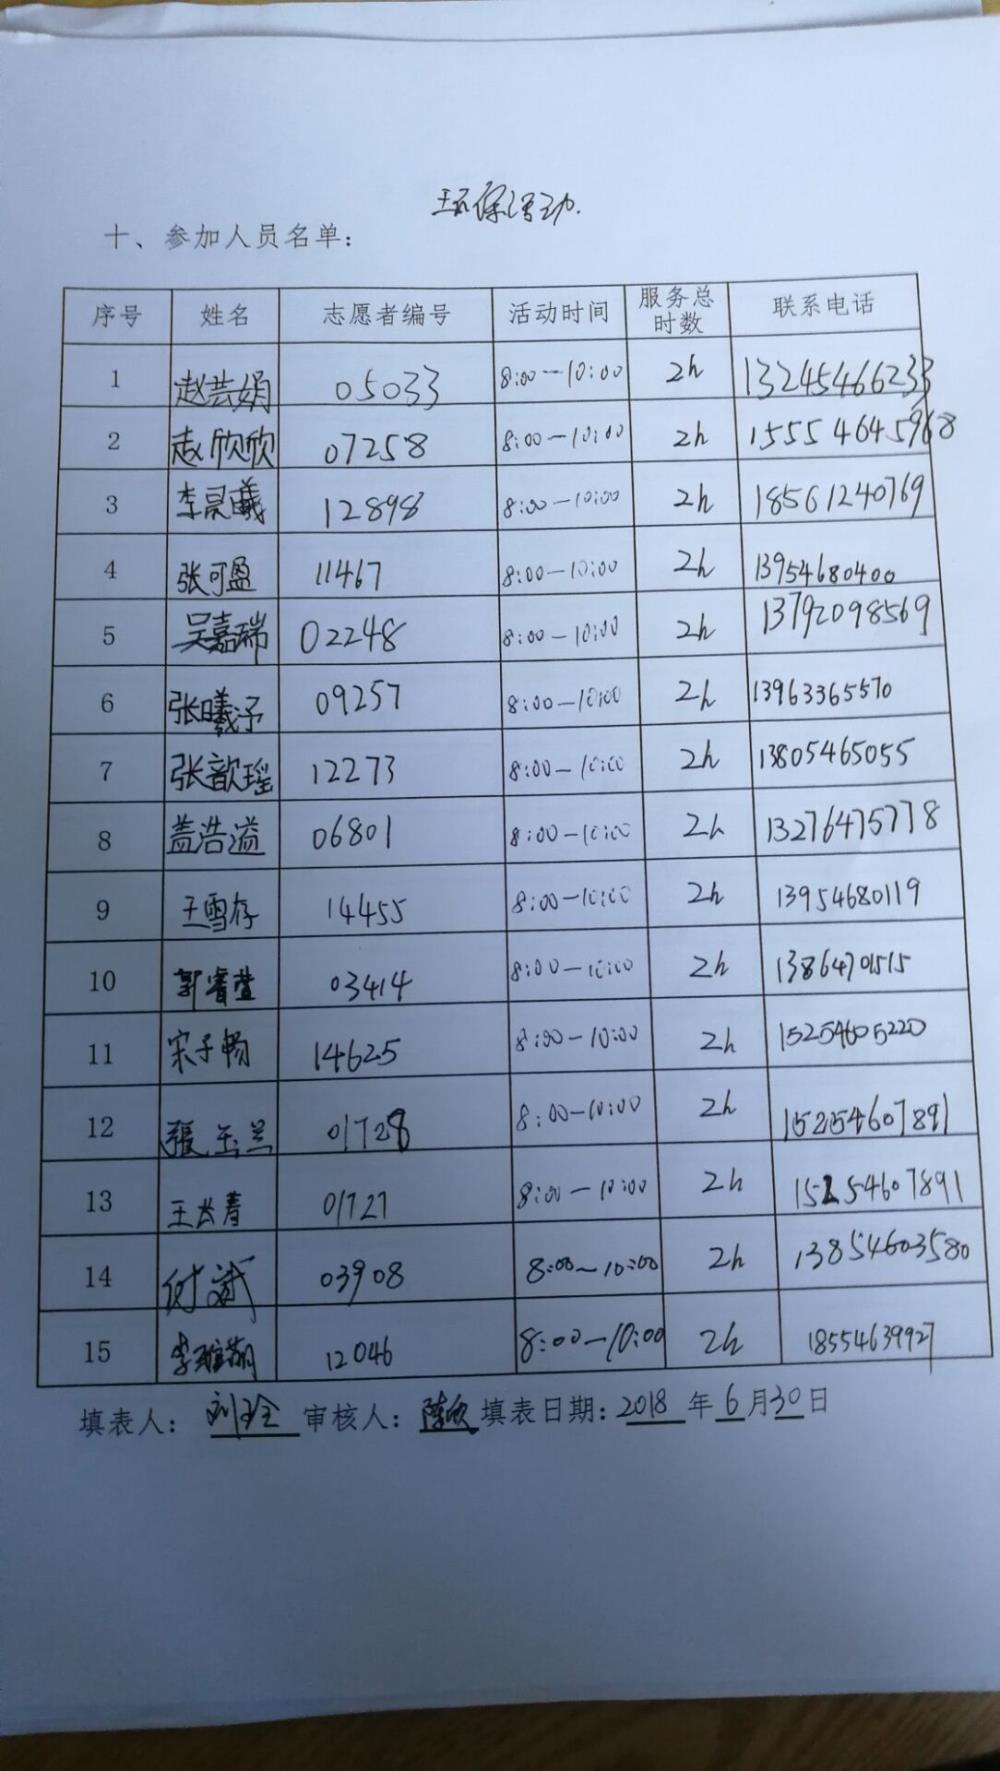 环保活动.
十、参加人员名单：
序号 姓名 志愿者编号 活动时间 服务总时数 联系电话
1 赵芸娟 05033 8:00—10:00 2h 13245466233
2 赵欣欣 07258 8:00—10:00 2h 15554645968
3 李昊曦 12898 8:00—10:00 2h 18561240769
4 张可盈 11467 8:00—10:00 2h 13954680400
5 吴嘉瑞 02248 8:00—10:00 2h 13792098569
6 张曦予 09257 8:00—10:00 2h 13963365570
7 张歆瑶 12273 8:00—10:00 2h 13805465055
8 盖浩溢 06801 8:00—10:00 2h 13276475778
9 王雪存 14455 8:00—10:00 2h 13954680119
10 郭睿萱 03414 8:00—10:00 2h 13864701515
11 宋子畅 14625 8:00—10:00 2h 15254605220
12 張玉兰 01728 8:00—10:00 2h 15254607891
13 王长青 01727 8:00—10:00 2h 15254607891
14 付斌 03908 8:00—10:00 2h 13854603580
15 李雅萌 12046 8:00—10:00 2h 18554639927
填表人： 刘玲 审核人：陈欣 填表日期：2018 年 6 月 30 日